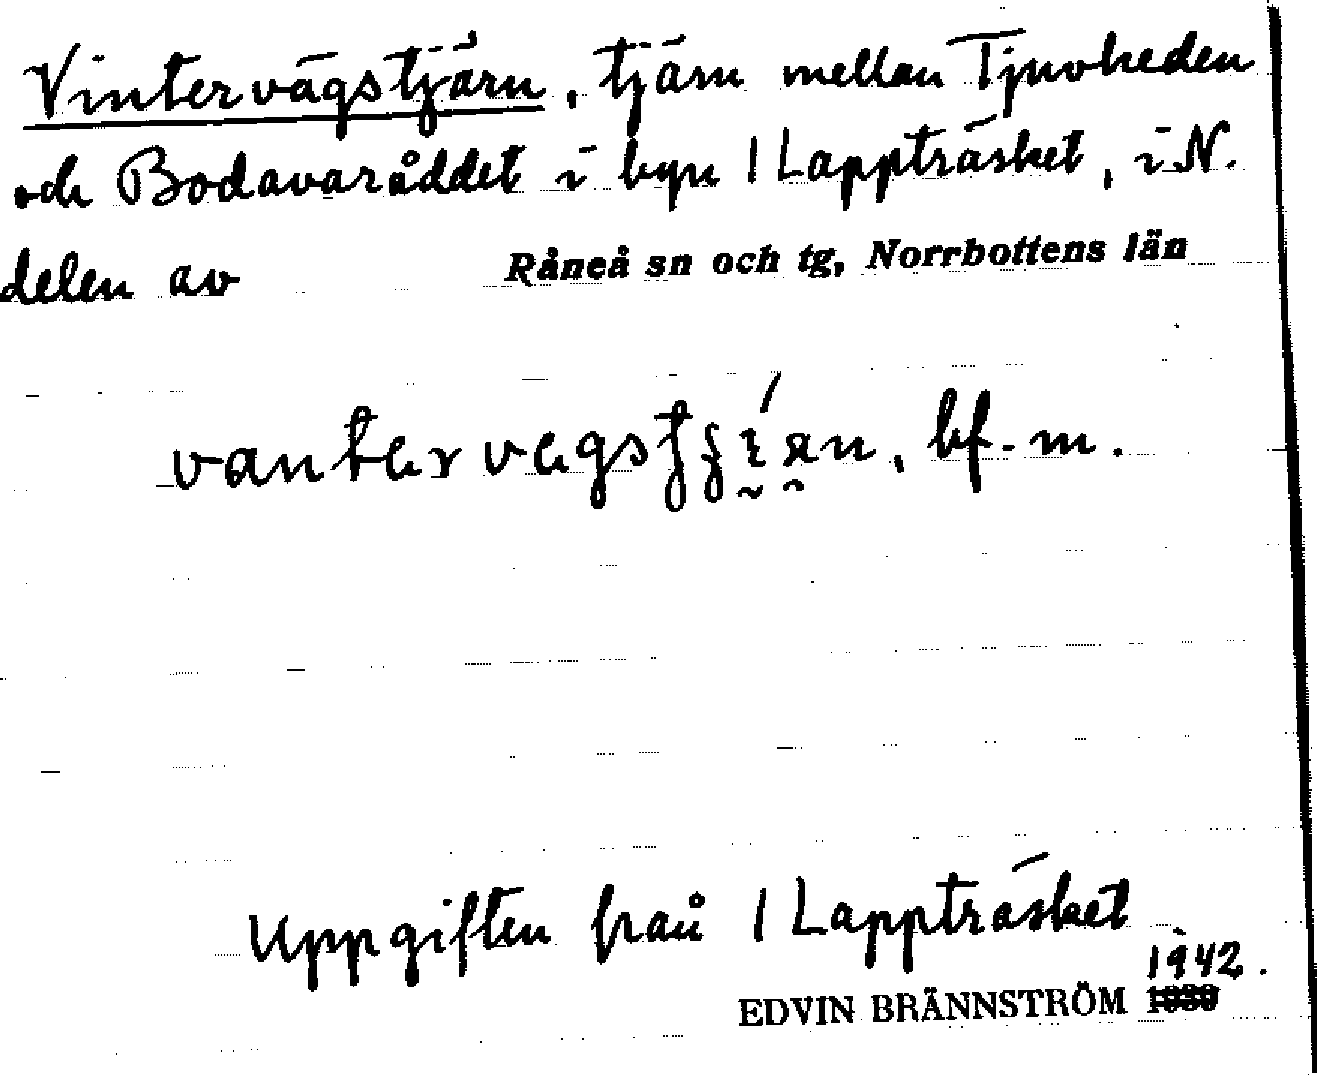 Vintervägstjärn, tjärn mellan Tjuvheden
och Bodavaråddet i byn 1 Lappträsket, i N.
delen av Råneå sn och tg, Norrbottens län
bf. m.
Uppgiften från 1 Lappträsket
1942.
EDVIN BRÄNNSTRÖM 1930